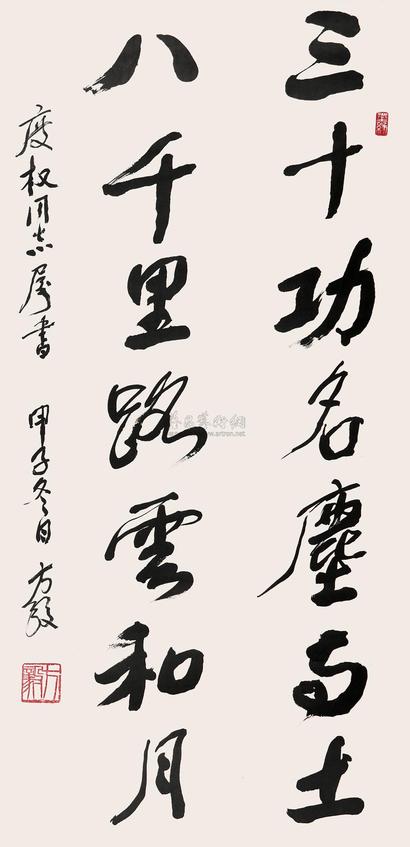 三十功名塵与土
八千里路雲和月
度权同志属書 甲子冬日 方毅
方毅
www.artron.net